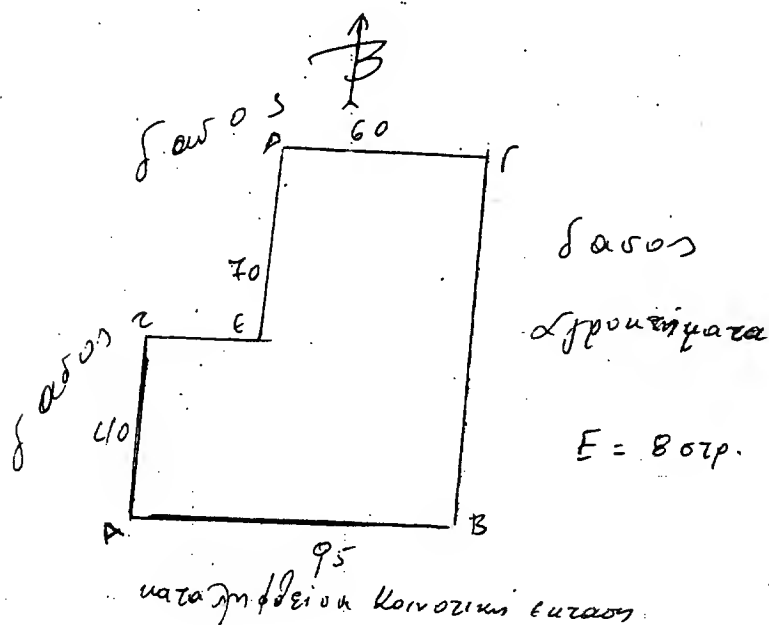 Β
δασος
60
Δ
Γ
70
δασος
αγροκτήματα
Ζ
Ε
δασος
40
Ε = 8 στρ.
Α
Β
95
καταληφθείσα Κοινοτική εκταση